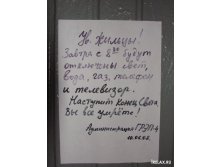 Ув. жильцы!
Завтра с 8⁰⁰ будут
отключены свет,
вода, газ, телефон
и телевизор.
Наступит Конец Света
Вы все умрёте!
Администрация
TRELAX.RU